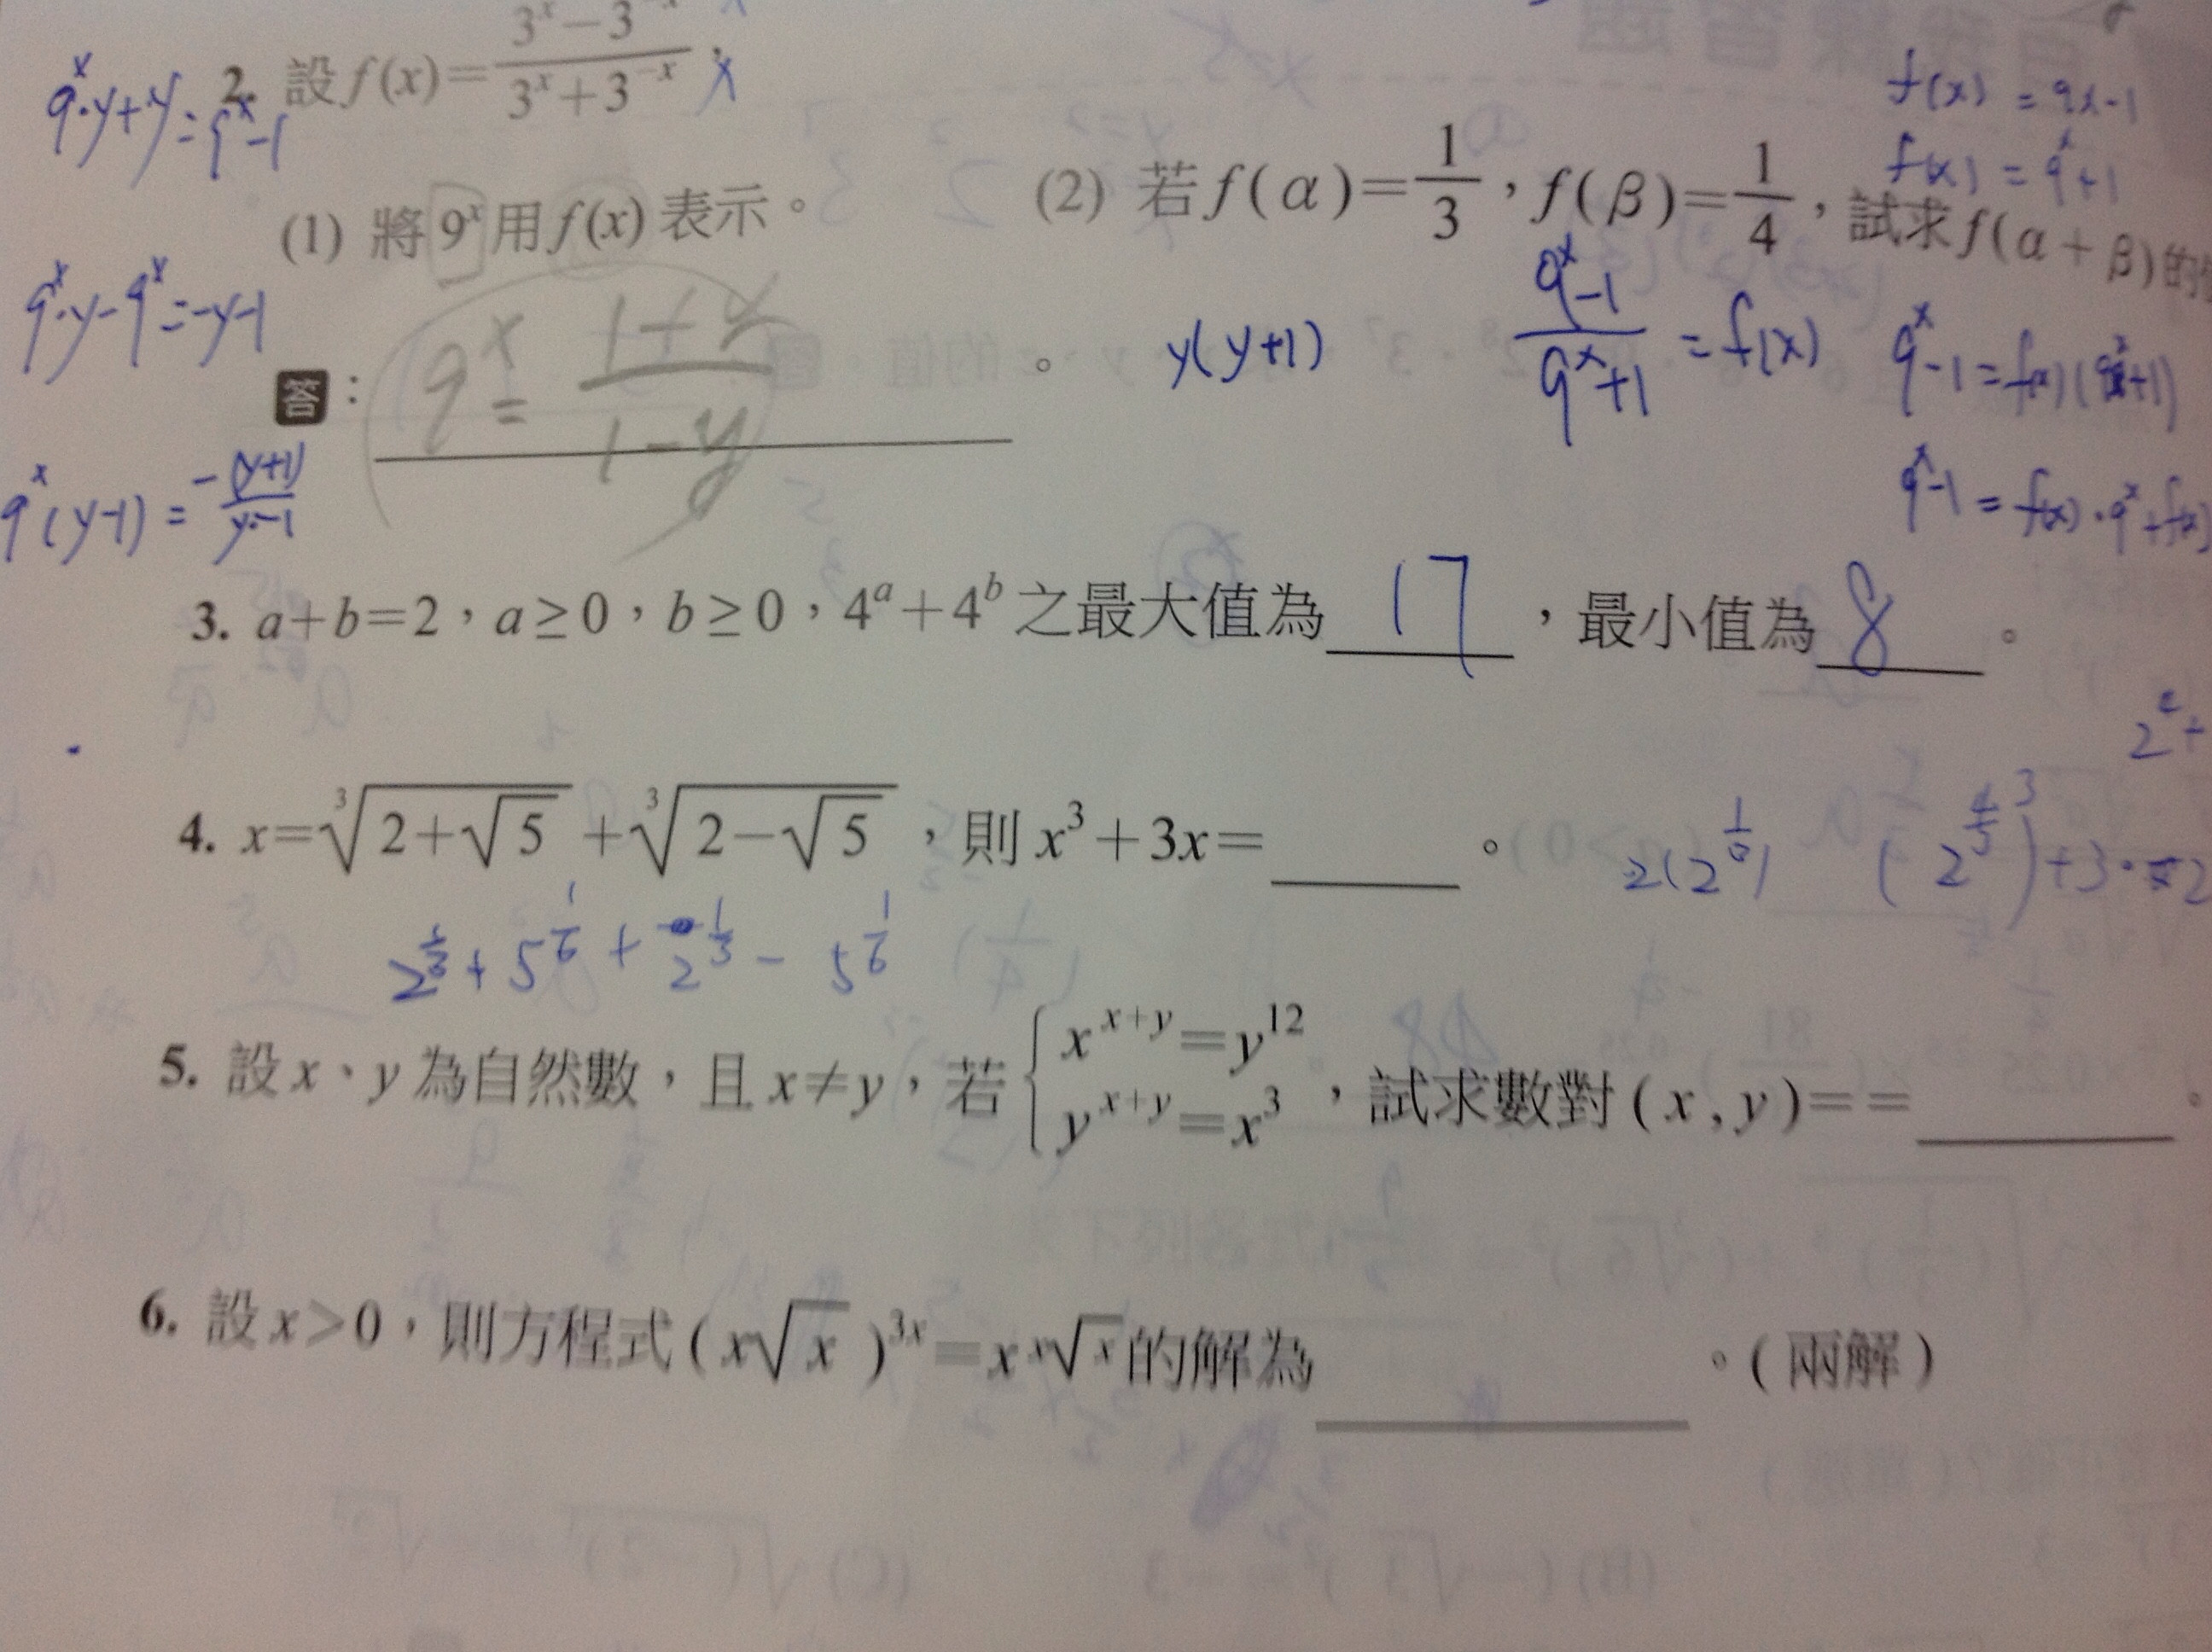 2. 設 f(x) = (3^x − 3^−x) / (3^x + 3^−x) ,
9^x·y+y = 9^x−1
f(x) = 9x−1
f(x) = 9^x+1
(1) 將 9^x 用 f(x) 表示。
(2) 若 f(α) = 1/3 , f(β) = 1/4 , 試求 f(α+β) 的
9^x·y−9^x = −y−1
答: 9^x = (1+y)/(1−y) 。
y(y+1)
(9^x−1)/(9^x+1) = f(x)
9^x−1 = f(x)(9^x+1)
9^x(y−1) = −(y+1)/(y−1)
9^x−1 = f(x)·9^x+f(x)
3. a+b=2 , a≥0 , b≥0 , 4^a+4^b 之最大值為 17 , 最小值為 8 。
4. x=∛(2+√5) + ∛(2−√5) , 則 x³+3x= 。
5. 設 x、y 為自然數 , 且 x≠y , 若 { x^(x+y) = y^12
y^(x+y) = x^3 , 試求數對 ( x , y ) = =
6. 設 x>0 , 則方程式 ( x√x )^3x = x^(x√x) 的解為 。( 兩解 )